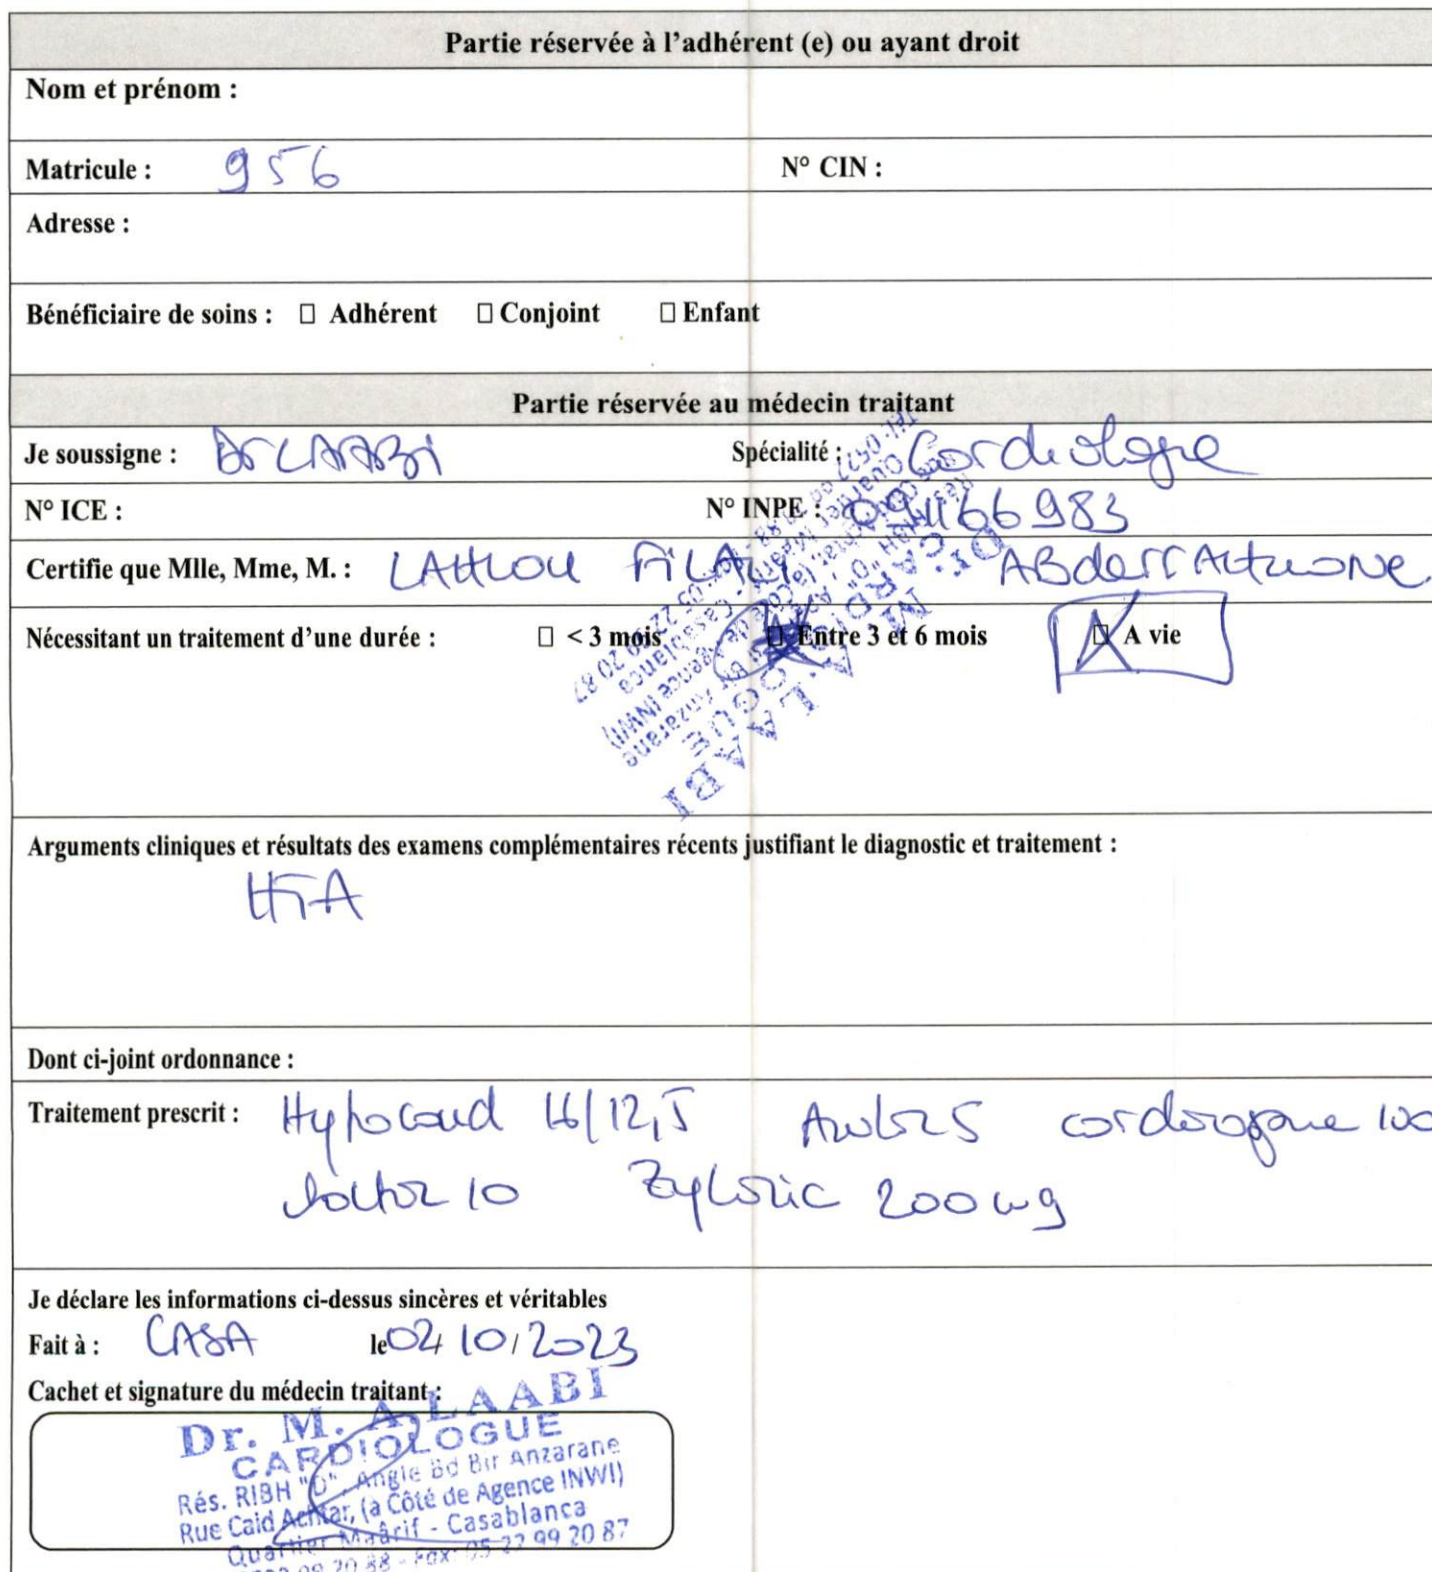 Partie réservée à l'adhérent (e) ou ayant droit
Nom et prénom :
Matricule : 956 N° CIN :
Adresse :
Bénéficiaire de soins : □ Adhérent □ Conjoint □ Enfant
Partie réservée au médecin traitant
Je soussigne : Dr LAABi Spécialité : Cardiologue
N° ICE : N° INPE : 091166983
Certifie que Mlle, Mme, M. : LAHLOU FiLALi ABderrAHmane
Nécessitant un traitement d'une durée : □ < 3 mois □ Entre 3 et 6 mois □ A vie
Arguments cliniques et résultats des examens complémentaires récents justifiant le diagnostic et traitement :
HTA
Dont ci-joint ordonnance :
Traitement prescrit : 16/12,5 100
10 Zyloric 200 mg
Je déclare les informations ci-dessus sincères et véritables
Fait à : CASA le 02/10/2023
Cachet et signature du médecin traitant :
Dr. M. A. LAABI
CARDIOLOGUE
Rés. RIBH "D", Angle Bd Bir Anzarane
Rue Caid Achtar, (à Côté de Agence INWI)
Quartier Maârif - Casablanca
Fax: 05 22 99 20 87